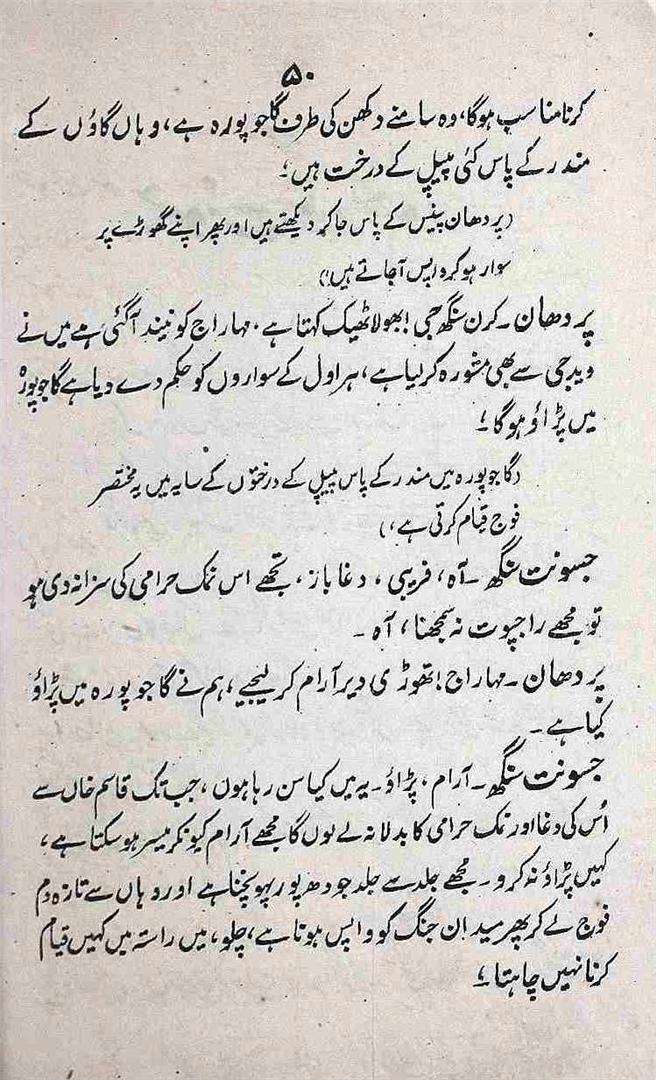 ۵۰
کرنا مناسب ہوگا، وہ سامنے دکھن کی طرف گاجو پورہ ہے، وہاں گاؤں کے
مندر کے پاس کئی پیپل کے درخت ہیں؛
(پردھان پینس کے پاس جاکر دیکھتے ہیں اور پھر اپنے گھوڑے پر
سوار ہوکر واپس آجاتے ہیں،)
پردھان۔ کرن سنگھ جی! بھولا ٹھیک کہتا ہے۔ مہاراج کو نیند آگئی ہے میں نے
ویدجی سے بھی مشورہ کر لیا ہے، ہراول کے سواروں کو حکم دے دیا ہے گاجو پورہ
میں پڑاؤ ہوگا؛
(گاجو پورہ میں مندر کے پاس پیپل کے درختوں کے سایہ میں یہ مختصر
فوج قیام کرتی ہے،)
جسونت سنگھ۔ آہ، فریبی، دغا باز، تجھے اس نمک حرامی کی سزا نہ دی ہو
تو مجھے راجپوت نہ سمجھنا، آہ۔
پردھان۔ مہاراج! تھوڑی دیر آرام کر لیجیے، ہم نے گاجو پورہ میں پڑاؤ
کیا ہے۔
جسونت سنگھ۔ آرام، پڑاؤ۔ یہ میں کیا سن رہا ہوں، جب تک قاسم خاں سے
اُس کی دغا اور نمک حرامی کا بدلا نہ لے لوں گا مجھے آرام کیونکر میسر ہوسکتا ہے،
کہیں پڑاؤ نہ کرو۔ مجھے جلد سے جلد جودھرپور پہونچنا ہے اور وہاں سے تازہ دم
فوج لے کر پھر میدان جنگ کو واپس ہونا ہے، چلو، میں راستہ میں کہیں قیام
کرنا نہیں چاہتا؛